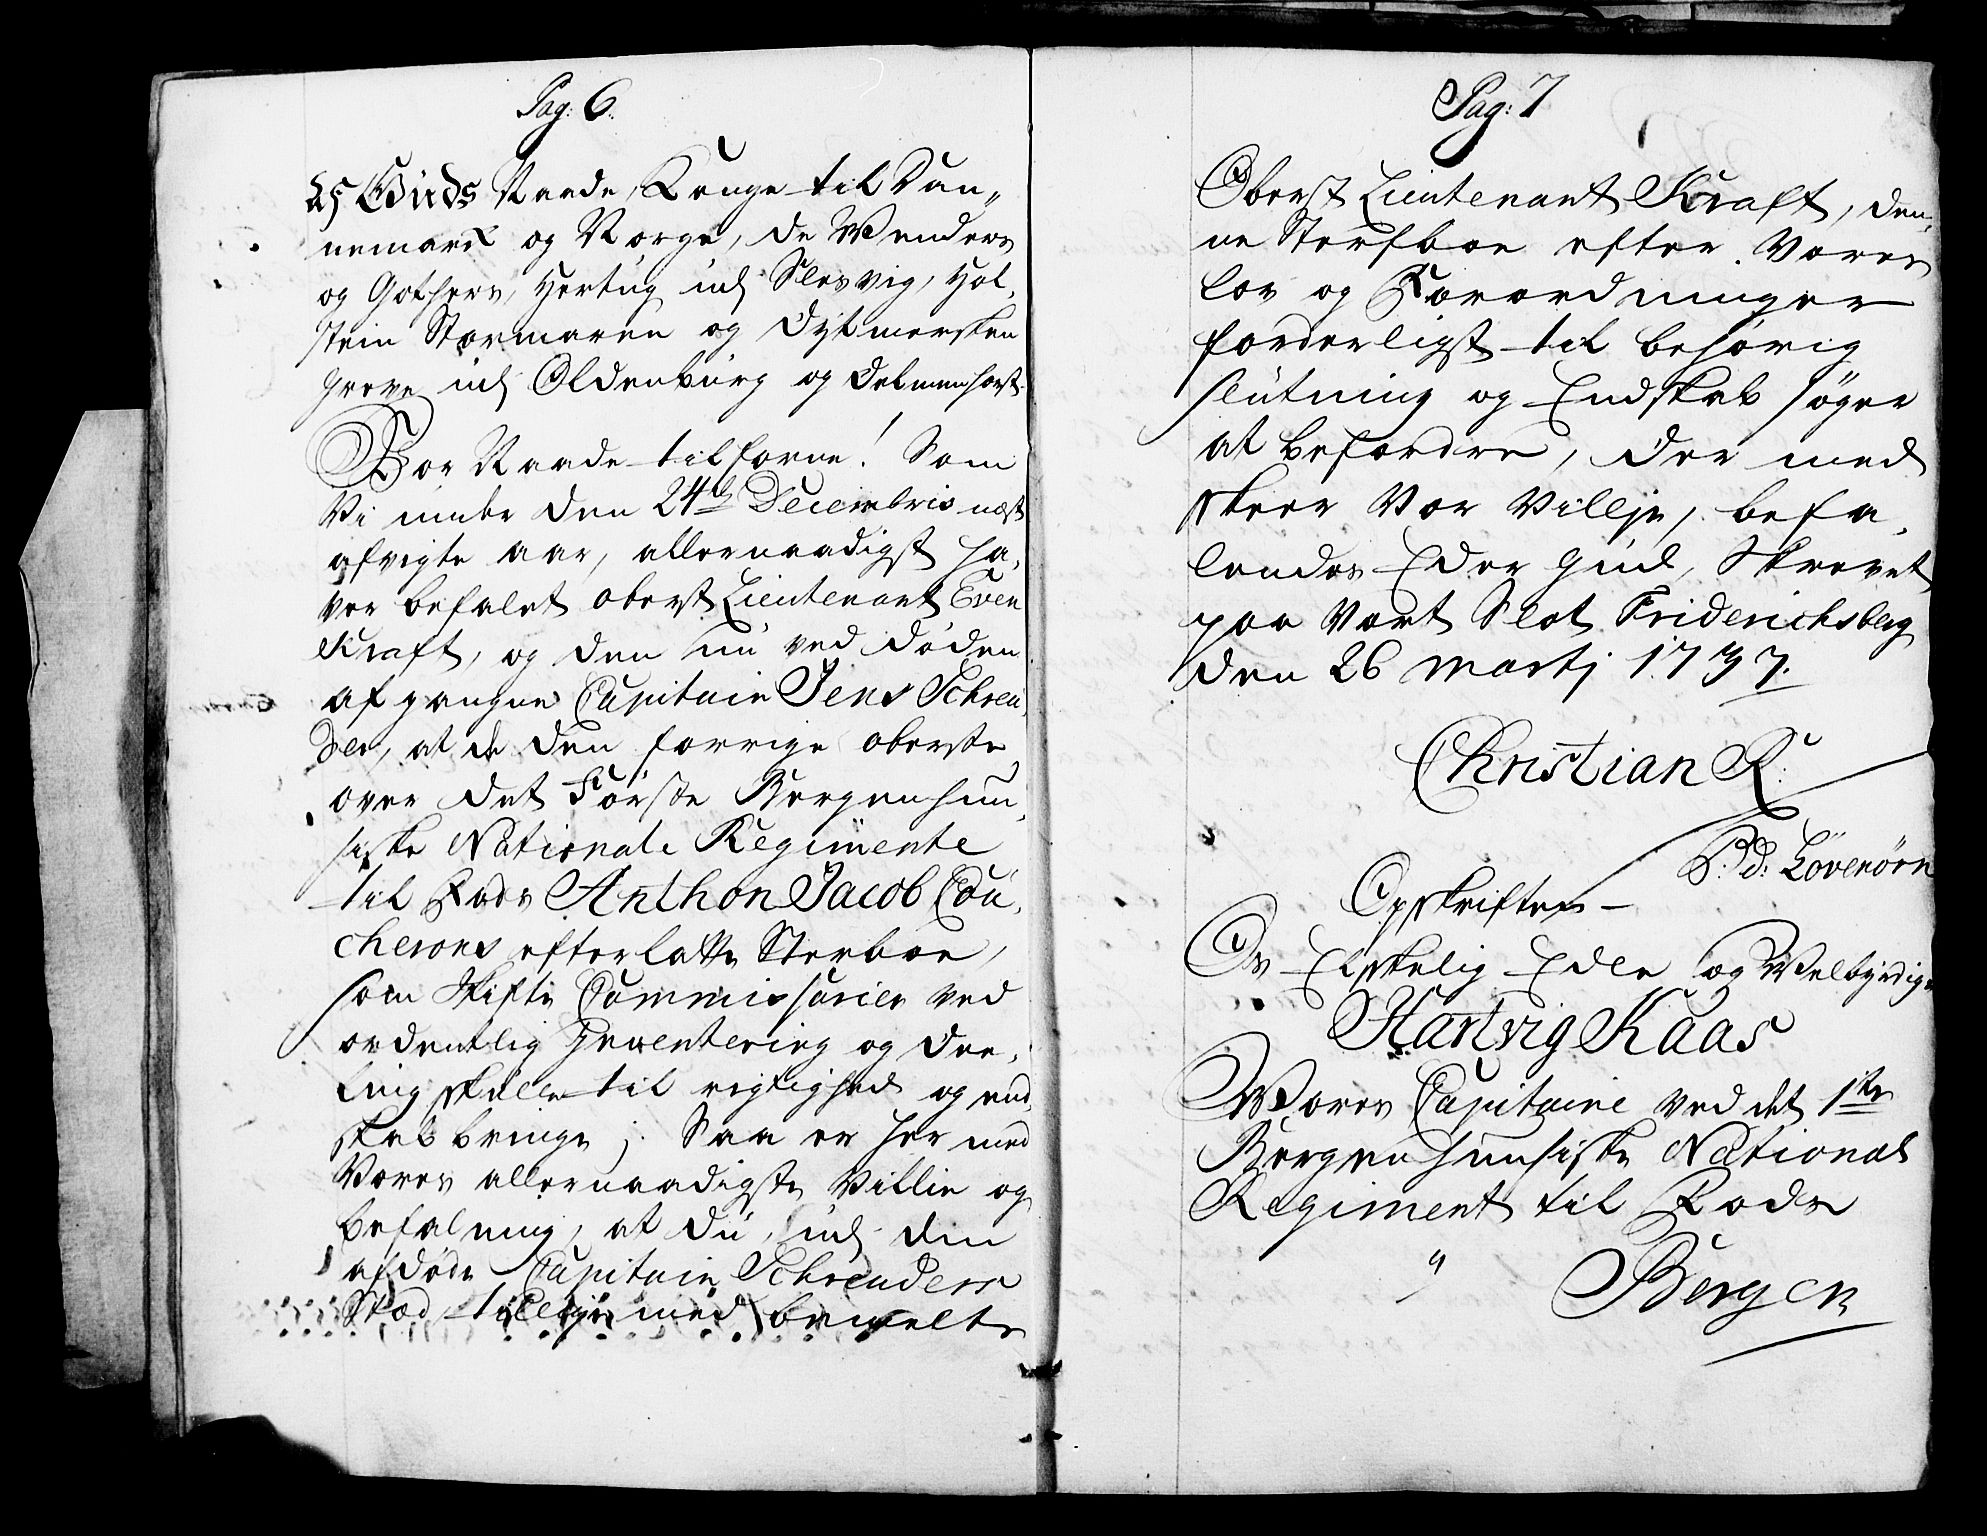 Pag: 6.
af Guds Naade, Konge til Dan„
nemarck og Norge, de Wenders
og Gothers, Hertug udi Slesvig, Hol„
stein Stormaren og Dytmersken
greve udi Oldenburg og Delmenhorst
Vor Naade tilforne! Som
Vi under den 24de Decembris næst
afvigte aar, allernaadigst ha„
ver befalet oberst Lieutenant Even
Kraft, og den nu ved døden
afgangne Capitain Jens Schreu„
der, at de den forrige oberste
over det Förste Bergenhuu„
siske Nationale Regimente
til Fods Anthon Jacob Cou„
cherons efterlatte Sterboe,
som Skifte Commissarier ved
ordentlig Inventering og dee„
ling skulle til rigtighed og end„
skab bringe; Saa er her med
Vores allernaadigste Villie og
befalning, at du, udi den
afdøde Capitain Schreuders
Stæd tillige med bemelte
Pag: 7
Oberst Lieutenant Kraft, den„
ne Sterfboe efter Vores
Lov og Forordninger
forderligst til behörig
slutning og Endskab söger
at befordre, der med
skeer Vor Villje, befa„
lendes Eder Gud, Skrevet
paa Vort Slot Friderichsberg
den 26 Martj 1737.
Christian R.
P: d: Lövenörn
Opskriften
Os Elskelig Edle og Welbyrdige
Hartvig Kaas
Wores Capitaine ved det 1ste
Bergenhuusiske National
Regiment til Fods
Bergen